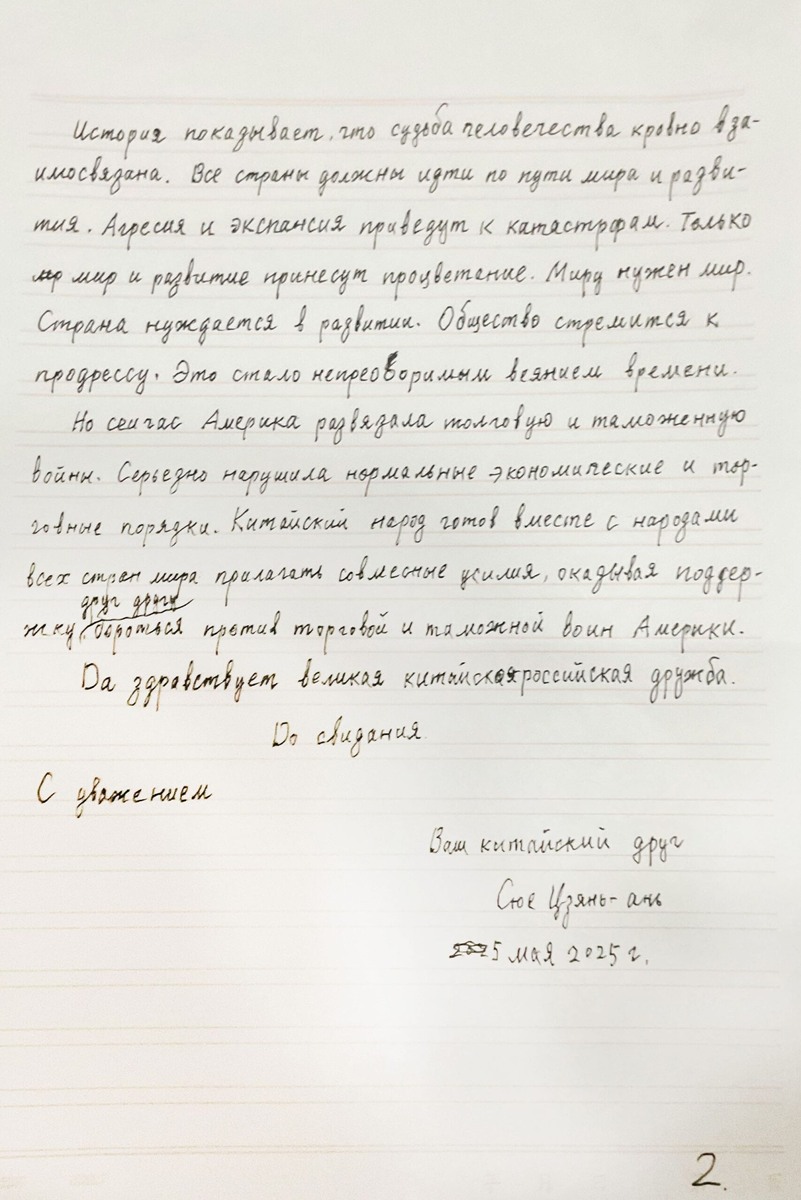 История показывает, что судьба человечества кровно вза-
имосвязана. Все страны должны идти по пути мира и разви-
тия. Агресия и экспансия приведут к катастрфам. Только
мир и развитие принесут процветание. Миру нужен мир.
Страна нуждается в развитии. Общество стремится к
продрессу. Это стало непреоборимым веянием времени.
Но сейчас Америка развядала толговую и таможенную
войны. Серьедно нарушила нормальные экономические и тор-
говные порядки. Китайский народ готов вместе с народами
всех стран мира прилагать совмесные усилия, окадывая поддер-
друг другу
жку, бороться против торговой и таможной воин Америки.
Да здравствует великая китайскаяроссийская дружба.
До свидания.
С уважением
Ваш китайский друг
Сюе Цзянь-ань
5 мая 2025 г.
2.